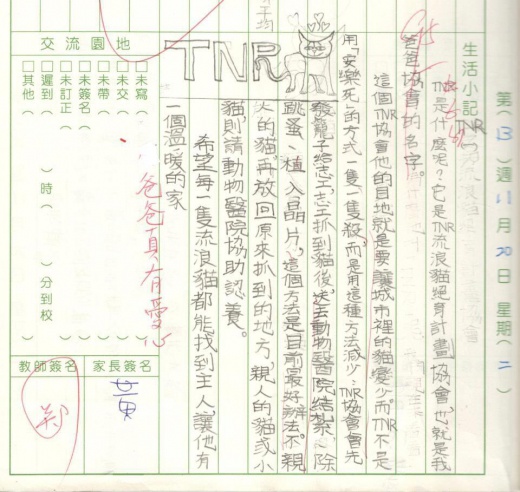 第(13)週11月20日星期(二)
生活小記 TNR
TNR是什麼呢?它是TNR流浪貓絕育計畫協會,也就是我
爸爸協會的名字。
這個TNR協會他的目地就是要讓城市裡的貓變少,而TNR不是
用「安樂死」的方式一隻一隻殺,而是用這種方法減少:TNR協會會先
發籠子給志工,志工抓到貓後,送去動物醫院結紮、除
跳蚤、植入晶片,這個方法是目前最好辦法。不親
人的貓,再放回原來抓到的地方,親人的貓或小
貓,則請動物醫院協助認養。
希望每一隻流浪貓都能找到主人,讓他有
一個溫暖的家
TNR
交流園地
□未寫
□未交
□未帶
□未簽名
□未訂正
□遲到( )時( )分到校
□其他
爸爸真有愛心
家長簽名
黃
教師簽名
鄭